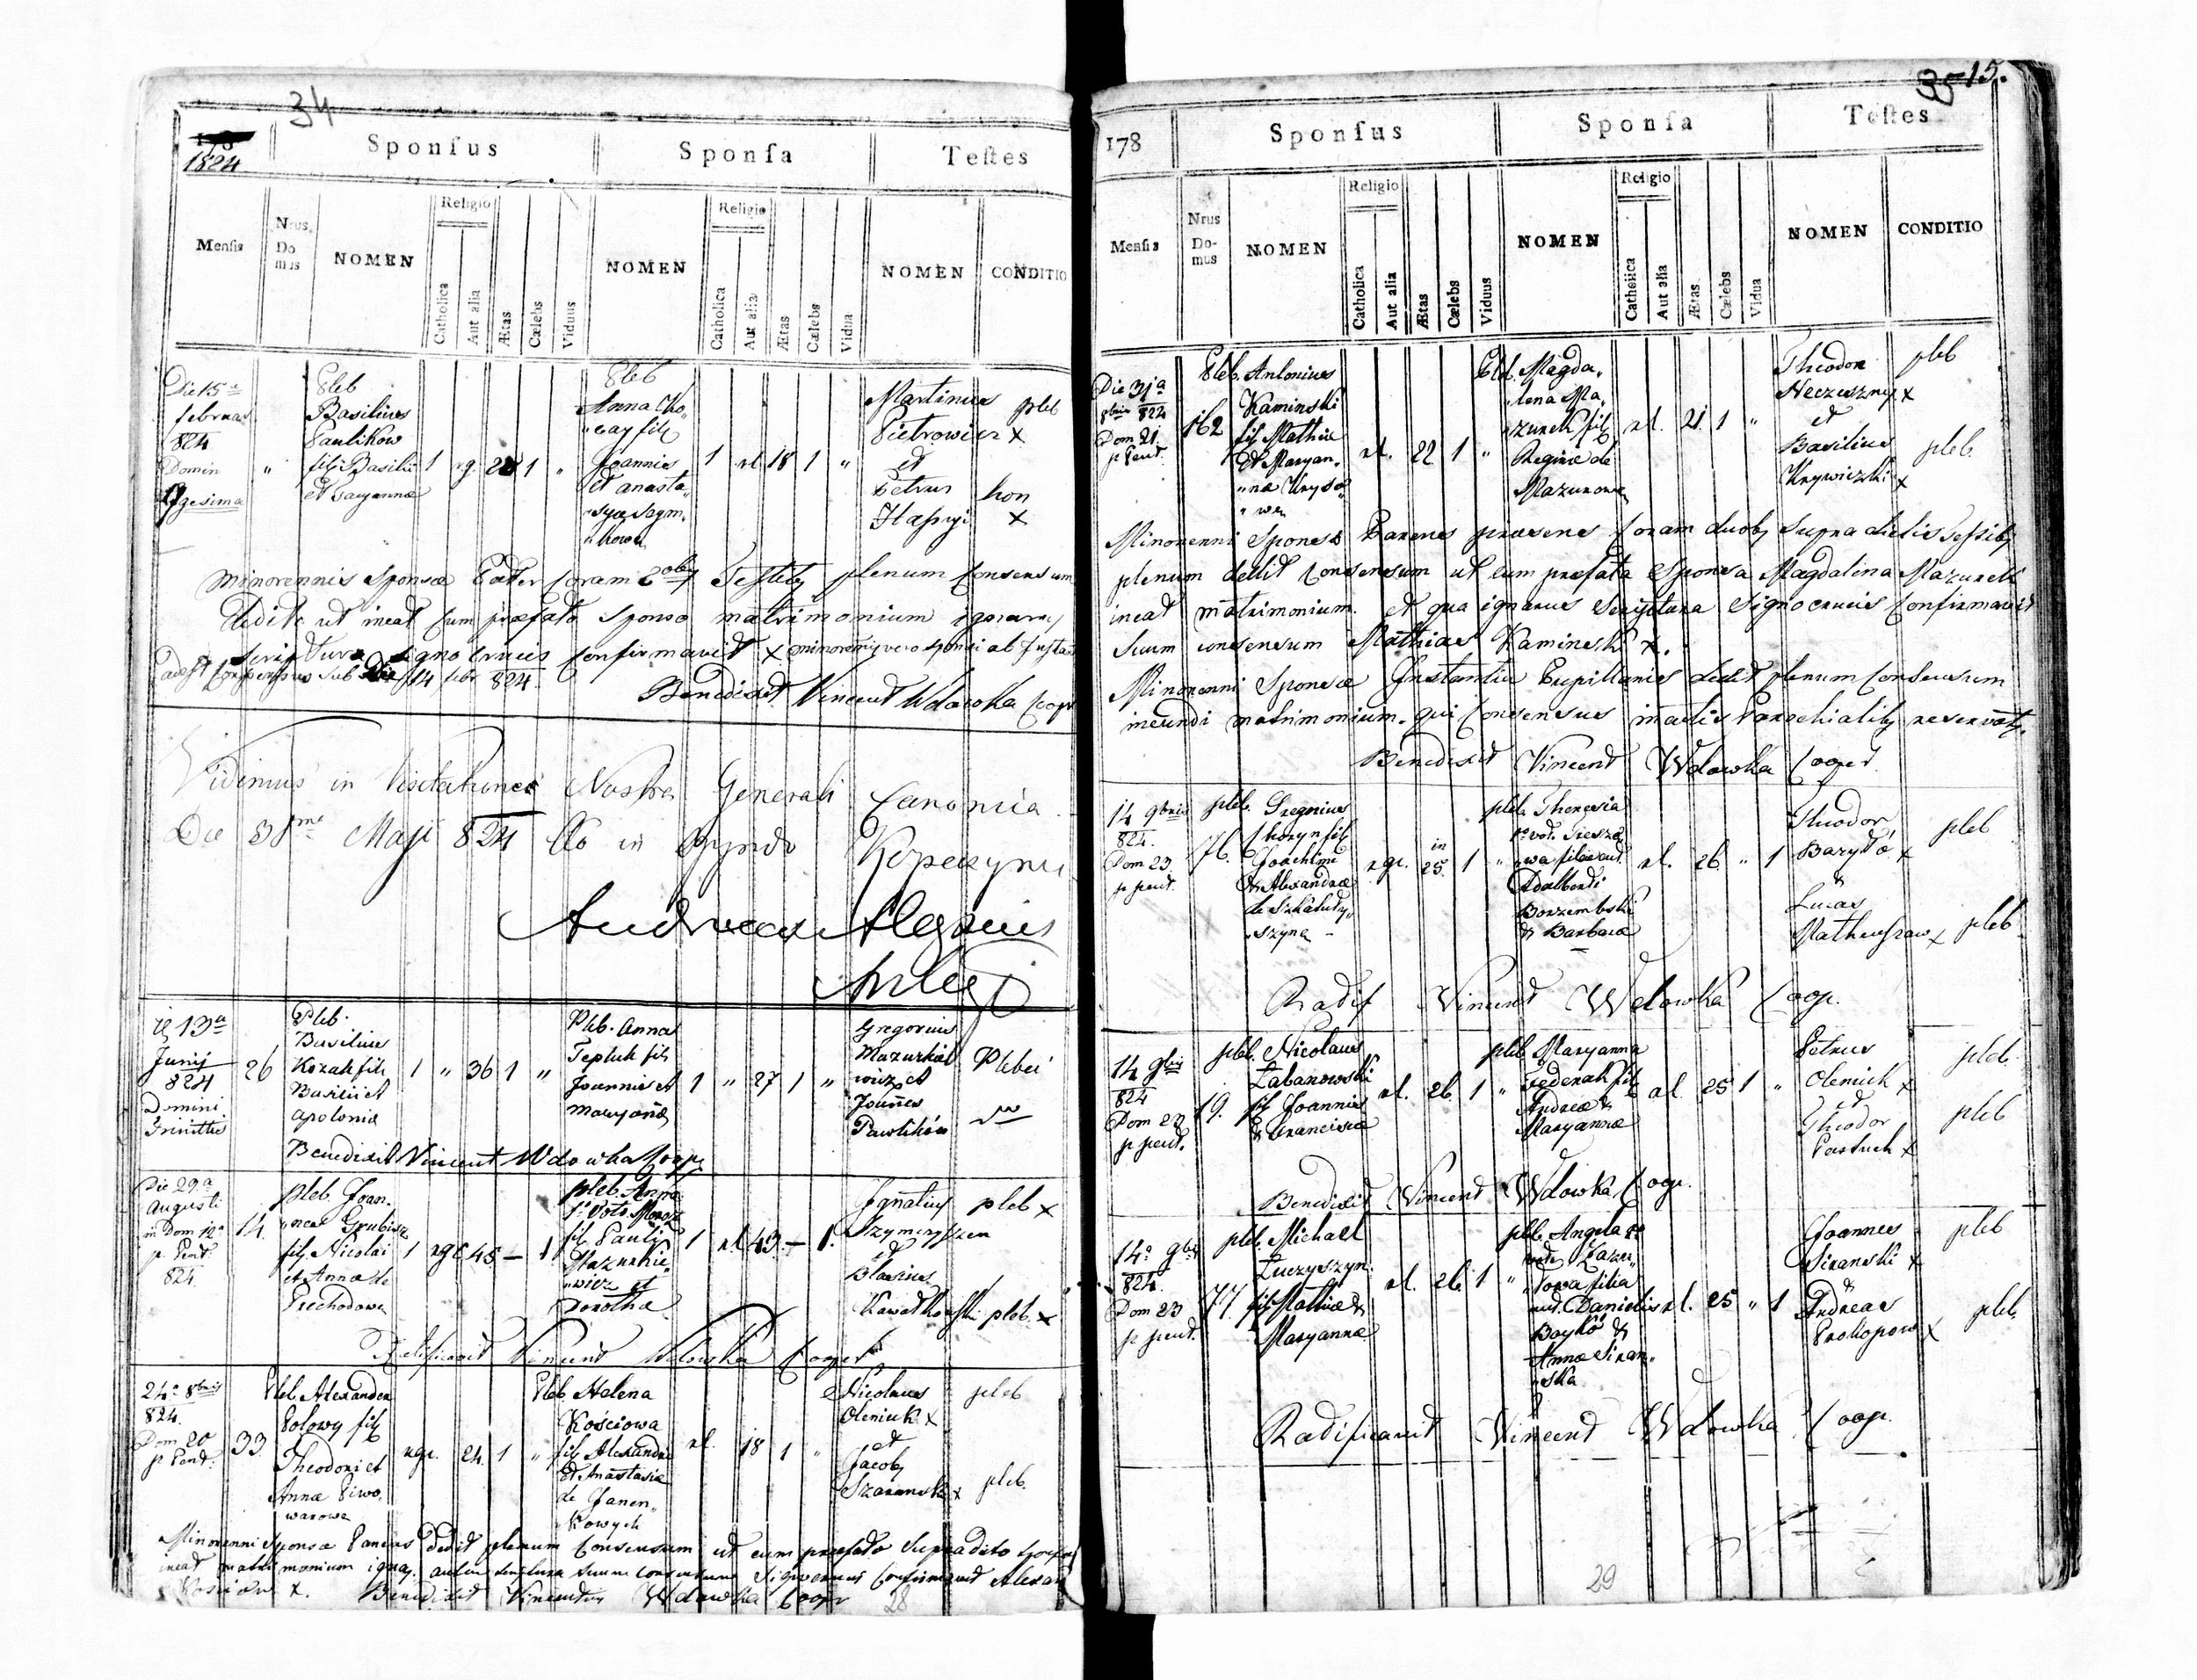 34
178
1824
Sponsus
Sponsa
Testes
Mensis
Nrus Domus
NOMEN
Religio
Catholica
Aut alia
Ætas
Cœlebs
Viduus
NOMEN
Religio
Catholica
Aut alia
Ætas
Cœlebs
Vidua
NOMEN
CONDITIO
Die 15a
februar
824
Domin
"
Pleb
Basilius
Paulikow
fil: Basilii
et Maryannæ
1
rg.
28
1
"
Pleb
Anna Ko„
„cay fil:
Joannis
et Anasta„
„syæ Szym„
„kowa
1
rl
18
1
"
Martinus
Pietrowicz x
et
Petrus
pleb
hon
x
Minorennis Sponsæ Pater coram 2obus Testibus plenum consensum
dedit ut ineat cum præfato Sponso matrimonium ignarus
Scripturæ signo crucis confirmavit x minorenni vero sponsi ab Instan
adest consensus sub 14 febr 824
Benedixit Vincent Wdowka Coop
Vidimus in Visitatione Nostra Generali Canonica
Die 31me Maji 824
Andreas Aloysius
13a
Junij
824
Domini
Trinitt
26
Pleb.
Basilius
Kozak fil:
Basilii et
Apolonia
1 " 36 1 "
Pleb. Anna
Tepluk fil:
Joannis et
Maryañæ
1 " 27 1 "
Gregorius
Mazurkie
wicz et
Joañes
Pawlików
Plebei
Benedixit Vincent Wdowka Coop:
Die 29a
Augusti
in Dom 12a
p. Pent
824
14
pleb. Joan„
„nes Grubisz
fil: Nicolai
et Annæ de
Prochodowa
1 rgc 45 – 1
pleb. Anna
1o Voto Moroz
fil: Pauli
Mazurkie„
„wicz et
Dorothæ
1 rl 43 – 1
Ignatius
Szymczyszen
et
Blasius
Kwiatkowski
pleb x
pleb. x
Ratificavit Vincent Wdowka Cooper
24a 8bris
824
Dom 20
p Pent.
33
Pleb. Alexander
Polowy fil:
Theodori et
Annæ Piwo„
warowa
rgc. 24 1 "
Pleb Helena
Kościowa
fil: Alexandri
et Anastasiæ
de Janen„
kowych
rl. 18 1 "
Nicolaus
Oleniuk x
et
Jacob:
Szaranski x
pleb
pleb.
Minorenni Sponsæ Parens dedit plenum consensum ut cum præfato supradicto sponso
ineat matrimonium ignar: autem scriptura suum consensum signo crucis confirmavit Alexan
Kosciow x. Benedixit Vincentius Wdowka Coopr
28
35 15.
178
Sponsus
Sponsa
Testes
Mensis
Nrus Domus
NOMEN
Religio
Catholica
Aut alia
Ætas
Cœlebs
Viduus
NOMEN
Religio
Catholica
Aut alia
Ætas
Cœlebs
Vidua
NOMEN
CONDITIO
Die 31a
8bris 824
Dom 21
p Pent.
162
Pleb. Antonius
Kaminski
fil: Mathiæ
et Maryan„
„næ Kryso„
„wa
rl. 22 1 "
Pleb. Magda„
„lena Ma„
„zurek fil:
Reginæ de
Mazurowa
rl. 21 1 "
Theodor
Neczeszny x
et
Basilius
Krywiczki x
pleb
pleb.
Minorenni Sponsi Parens præsens coram duob: supra dictis Testib:
plenum dedit consensum ut cum præfata Sponsa Magdalina Mazurek
ineat matrimonium. et qua ignarus Scriptura signo crucis confirmavit
suum consensum Mathias Kaminski x.
Minorenni Sponsæ Instantia Pupillaris dedit plenum consensum
ineundi matrimonium. qui consensus in actis Parochialib: reservat:
Benedixit Vincent Wdowka Cooper.
14 9bris
824.
Dom 23
p pent.
76.
pleb. Gregorius
Choryn fil:
Joachimi
& Alexandræ
de Szkałudy„
„szyna –
rgc. in 25. 1 "
pleb. Theresia
1o vot. Tresza
wa filia aut.
Adalberti
Borzembski
& Barbaræ
rl. 26 " 1
Theodor
Baryła x
&
Lucas
Mathewszow x
pleb
pleb
Radif Vincent Wdowka Coop.
14 9bris
824
Dom 23
p pent.
19.
pleb. Nicolaus
Zabanowski
fil: Joannis
& Franciscæ
rl. 26 1 "
pleb Maryanna
Fedenak fil:
Andreæ &
Maryannæ
rl. 25 1 "
Petrus
Oleniuk x
et
Theodor
Pastuch x
pleb.
pleb
Benedixit Vincent Wdowka Coop.
14a 9bris
824.
Dom 23
p pent.
77.
pleb. Michael
Łuczyszyn
fil: Mathiæ &
Maryannæ
rl. 26 1 "
pleb. Angela 1o
voto Łazu„
„towa filia
aut. Danielis
Boyko &
Annæ Siran„
„ska
rl. 25 " 1
Joannes
Siranski x
&
Andreas
Prokopow x
pleb
pleb.
Radificavit Vincent Wdowka Coop.
29